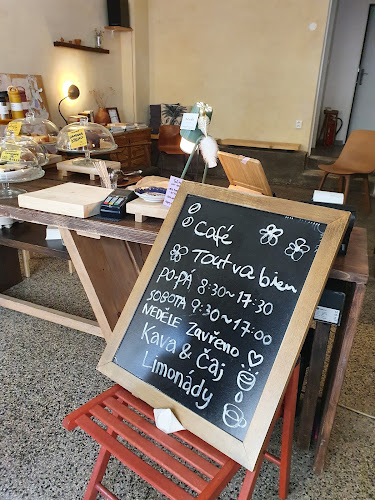 Café
Tout va bien
PO-PÁ 8:30~17:30
SOBOTA 9:30~17:00
NEDĚLE ZAVŘENO
Kava & Čaj
Limonády